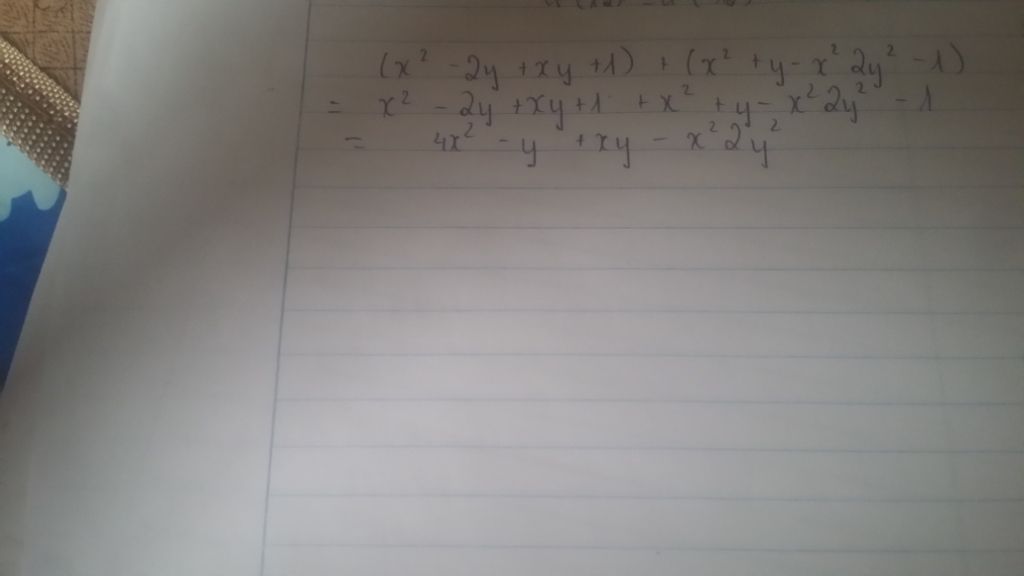 (x² - 2y + xy + 1) + (x² + y - x² 2y² - 1)
= x² - 2y + xy + 1 + x² + y - x² 2y² - 1
= 4x² - y + xy - x² 2y²